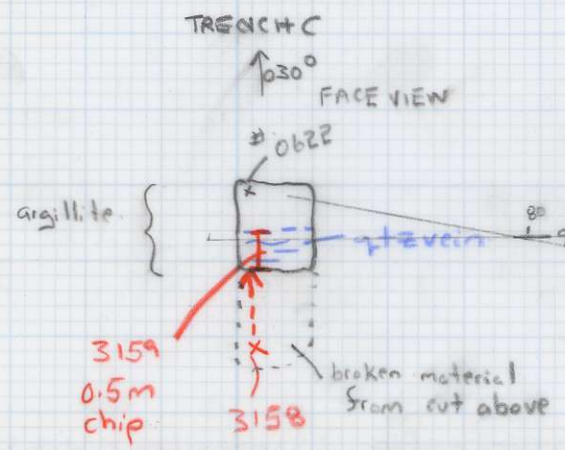 TRENCH C
030°
FACE VIEW
# 0622
argillite
80
qtz vein
3159
0.5m
chip
3158
broken material
from cut above